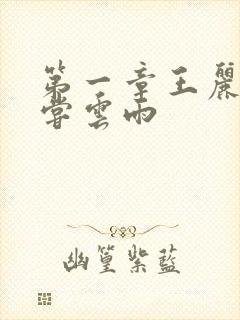 第一章王麗
嘗雲雨
幽篁紫藍